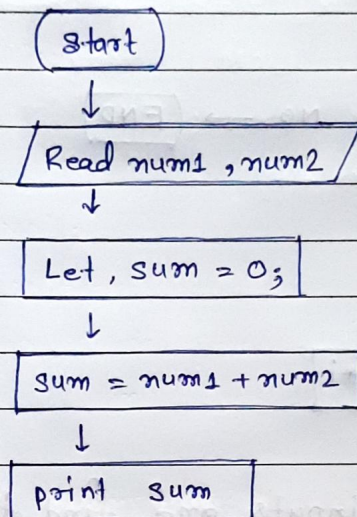 Start
Read num1 , num2
Let , sum = 0;
sum = num1 + num2
print sum